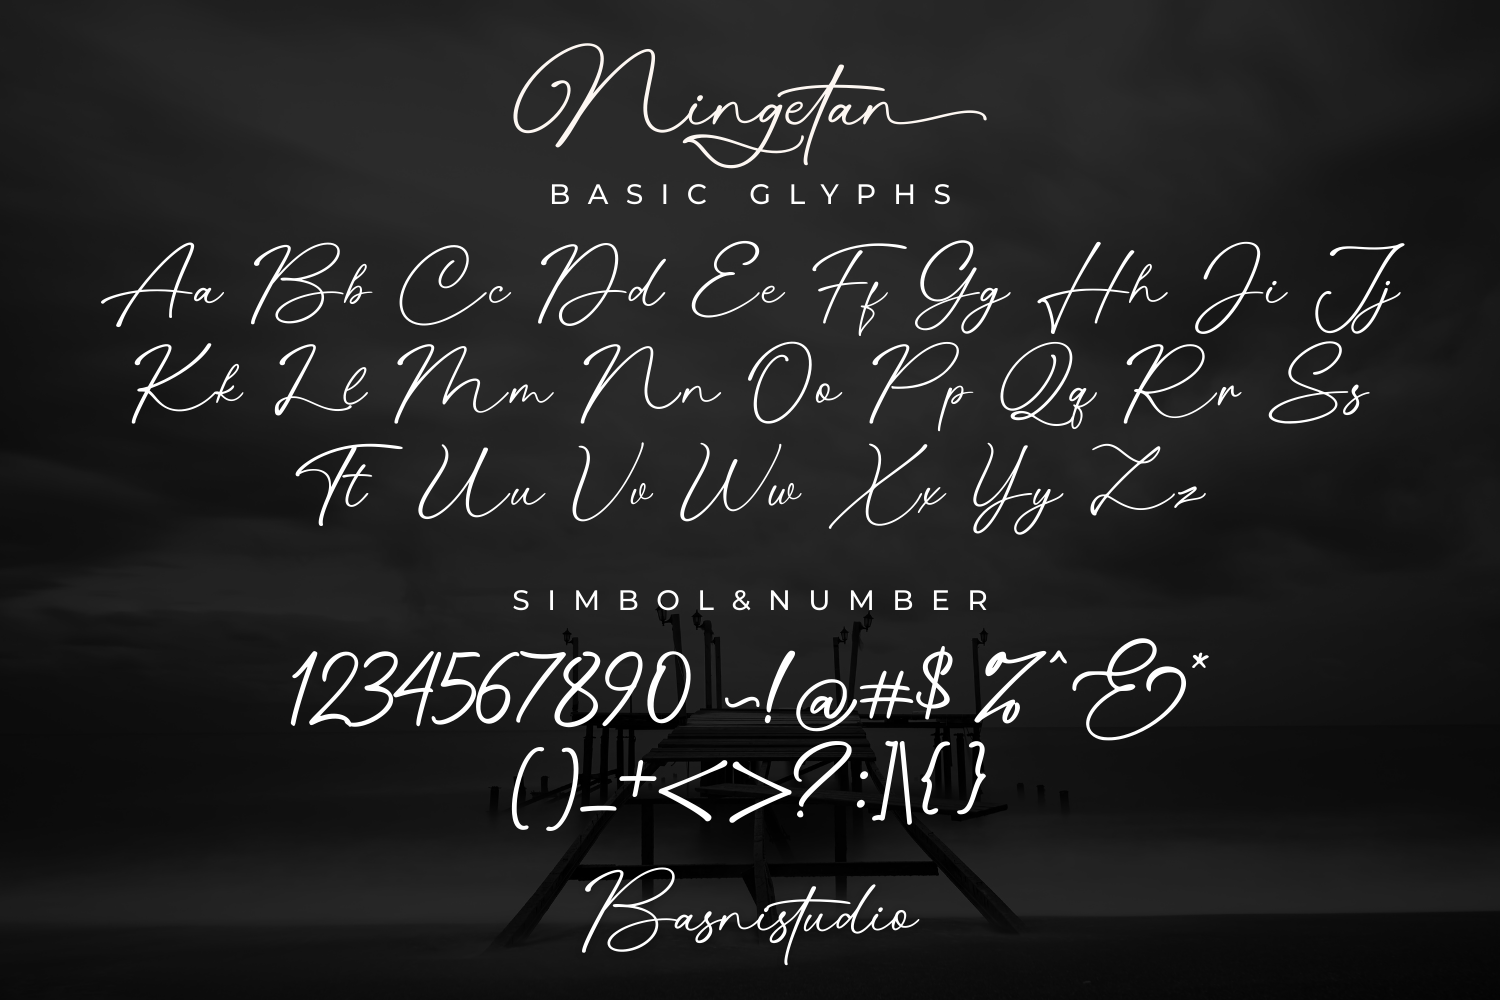 Ningetan
BASIC GLYPHS
Aa Bb Cc Dd Ee Ff Gg Hh Ii Jj
Kk Ll Mm Nn Oo Pp Qq Rr Ss
Tt Uu Vv Ww Xx Yy Zz
SIMBOL&NUMBER
1234567890 ~!@#$%^&*
()_+<>?:]|{}
Basnistudio